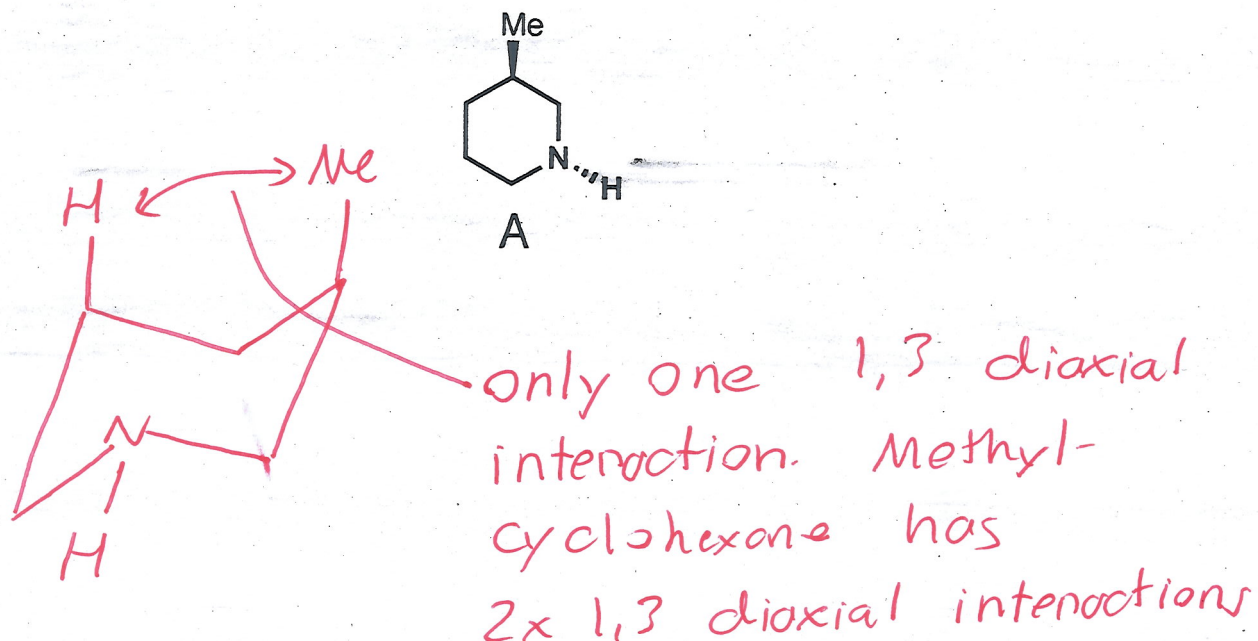 Me
N
H
A
H
Me
N
H
only one 1,3 diaxial
interaction. Methyl-
cyclohexane has
2x 1,3 diaxial interactions